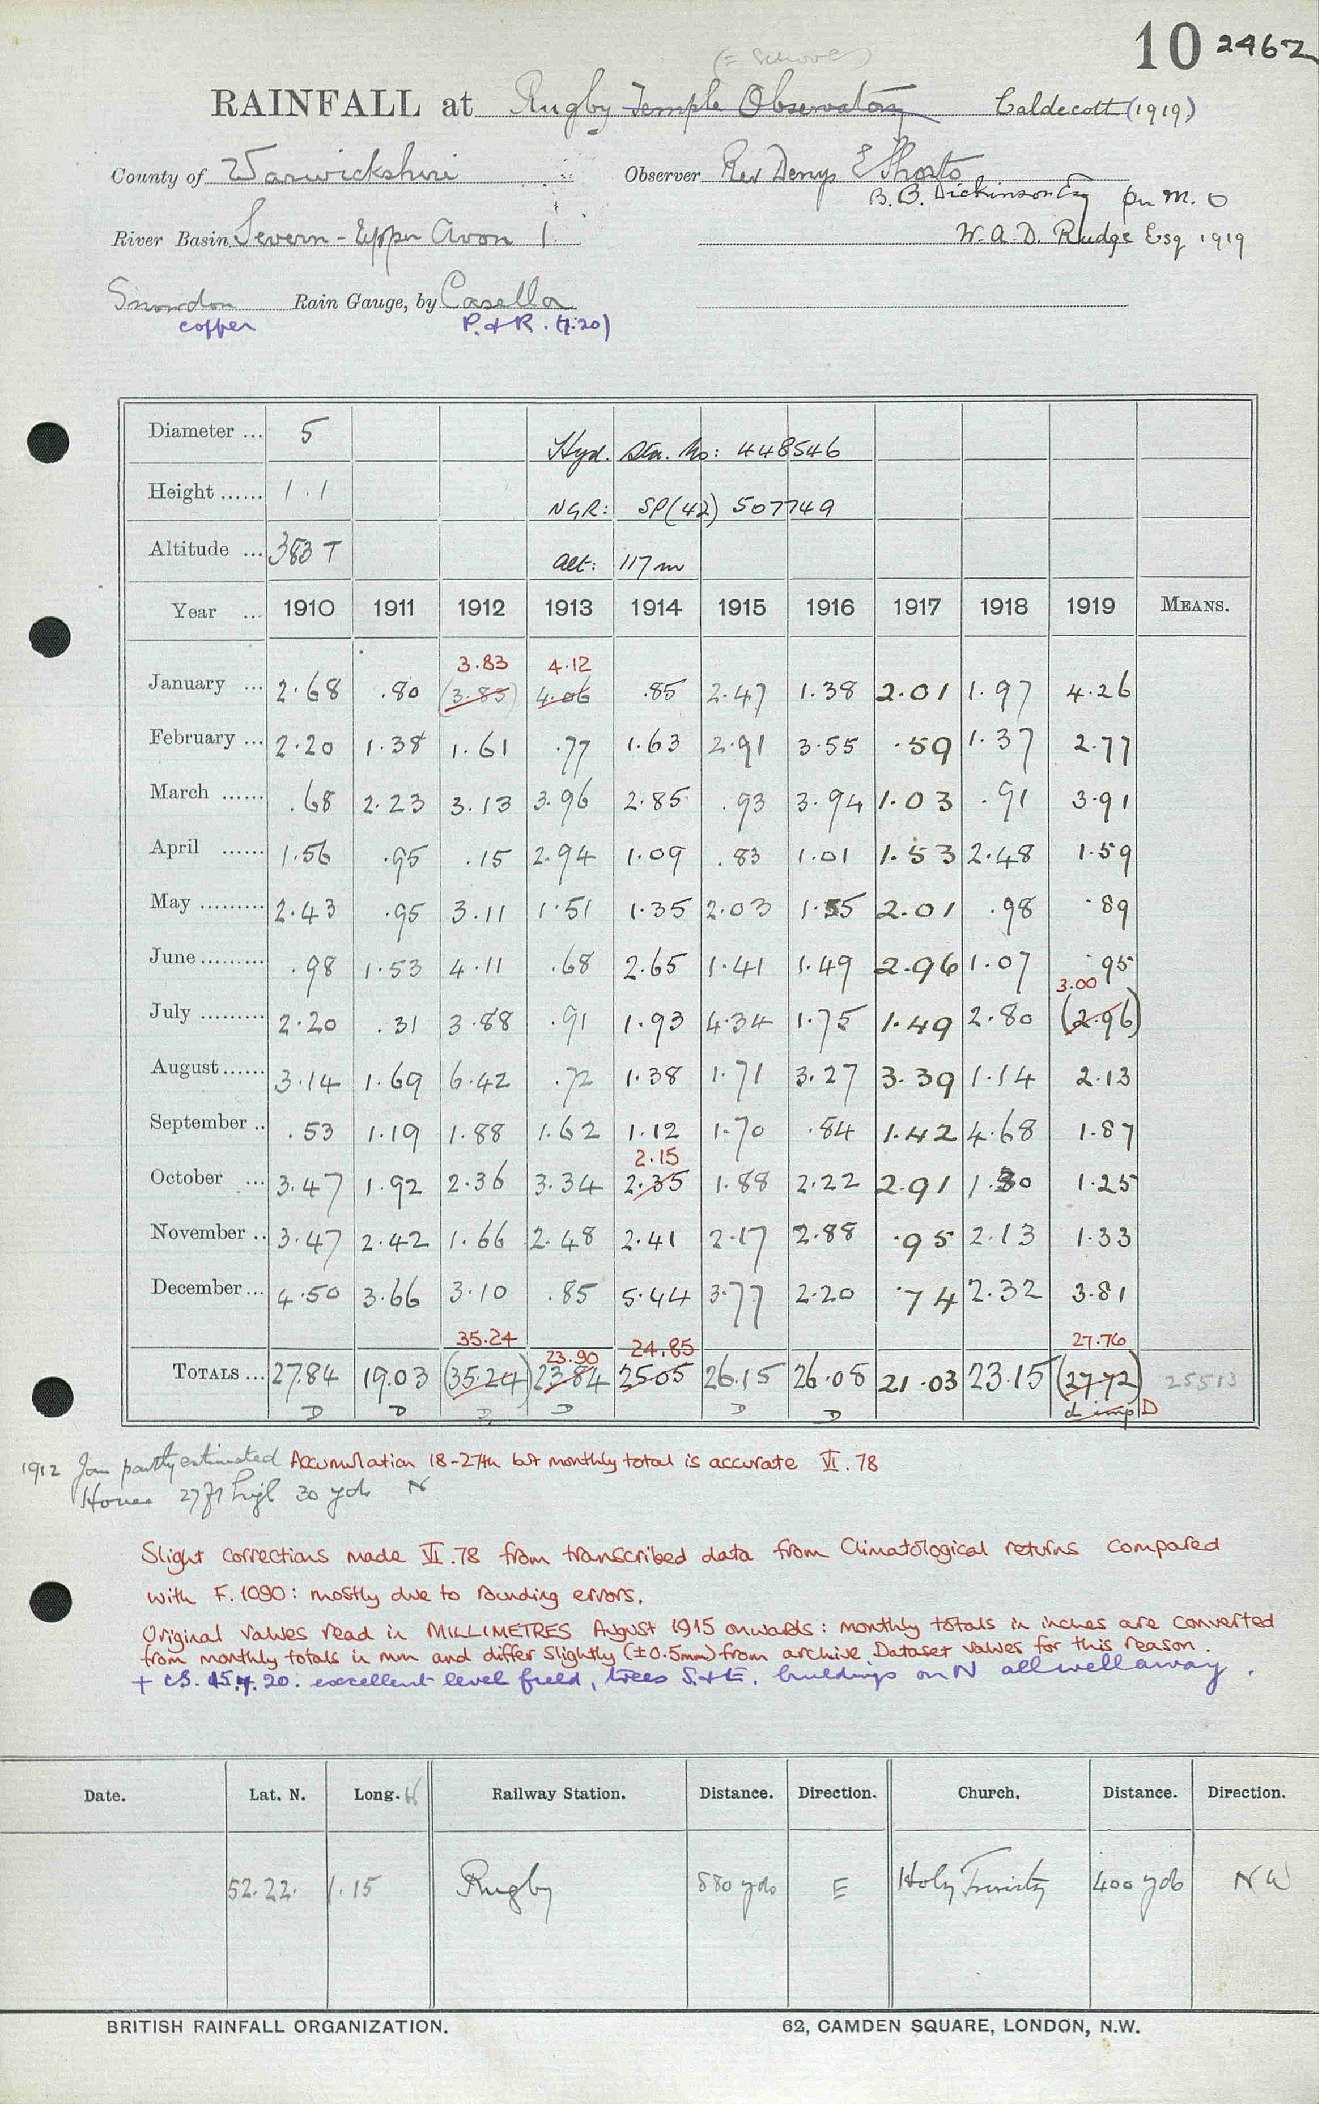 10 2462
(= School)
RAINFALL at Rugby Temple Observatory Caldecott (1919)
County of Warwickshire Observer Rev Denys E Shorto
B. B. Dickinson Esq per M. O
River Basin Severn - Upper Avon 1. W. A. D. Rudge Esq 1919
Snowdon Rain Gauge, by Casella
copper P. & R. (4.20)
Diameter ... 5 Hyd. Stn. No: 448546
Height ...... 1 . 1 NGR: SP(42) 507749
Altitude ... 383 T Alt: 117m
Year ... 1910 1911 1912 1913 1914 1915 1916 1917 1918 1919 MEANS.
3.83 4.12
January ... 2.68 .80 (3.83) 4.06 .85 2.47 1.38 2.01 1.97 4.26
February ... 2.20 1.38 1.61 .77 1.63 2.91 3.55 .59 1.37 2.77
March ...... .68 2.23 3.13 3.96 2.85 .93 3.94 1.03 .91 3.91
April ...... 1.56 .95 .15 2.94 1.09 .83 1.01 1.53 2.48 1.59
May ......... 2.43 .95 3.11 1.51 1.35 2.03 1.55 2.01 .98 .89
June ......... .98 1.53 4.11 .68 2.65 1.41 1.49 2.96 1.07 .95
3.00
July ......... 2.20 .31 3.88 .91 1.93 4.34 1.75 1.49 2.80 (2.96)
August ...... 3.14 1.69 6.42 .72 1.38 1.71 3.27 3.39 1.14 2.13
September .. .53 1.19 1.88 1.62 1.12 1.70 .84 1.42 4.68 1.87
2.15
October ... 3.47 1.92 2.36 3.34 2.35 1.88 2.22 2.91 1.30 1.25
November .. 3.47 2.42 1.66 2.48 2.41 2.17 2.88 .95 2.13 1.33
December ... 4.50 3.66 3.10 .85 5.44 3.77 2.20 .74 2.32 3.81
35.24 23.90 24.85 27.76
TOTALS ... 27.84 19.03 (35.24) 23.84 25.05 26.15 26.08 21.03 23.15 (27.72) 25513
D D D D D D d imp D
1912 Jan partly estimated Accumulation 18-27th but monthly total is accurate VI.78
House 27 ft high 30 yds N
Slight corrections made VI.78 from transcribed data from Climatological returns compared
with F.1090: mostly due to rounding errors.
Original values read in MILLIMETRES August 1915 onwards: monthly totals in inches are converted
from monthly totals in mm and differ slightly (±0.5mm) from archive Dataset values for this reason.
+ CS. 15.4.20. excellent level field, trees S.+E. buildings on N all well away.
Date. Lat. N. Long. W Railway Station. Distance. Direction. Church. Distance. Direction.
52.22. 1.15 Rugby 880 yds E Holy Trinity 400 yds NW
BRITISH RAINFALL ORGANIZATION. 62, CAMDEN SQUARE, LONDON, N.W.